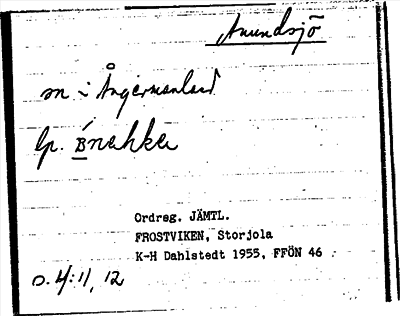 Anundsjö
sn i Ångermanland
lp.
Ordreg. JÄMTL.
FROSTVIKEN, Storjola
K-H Dahlstedt 1955, FFÖN 46
D. 4:11, 12